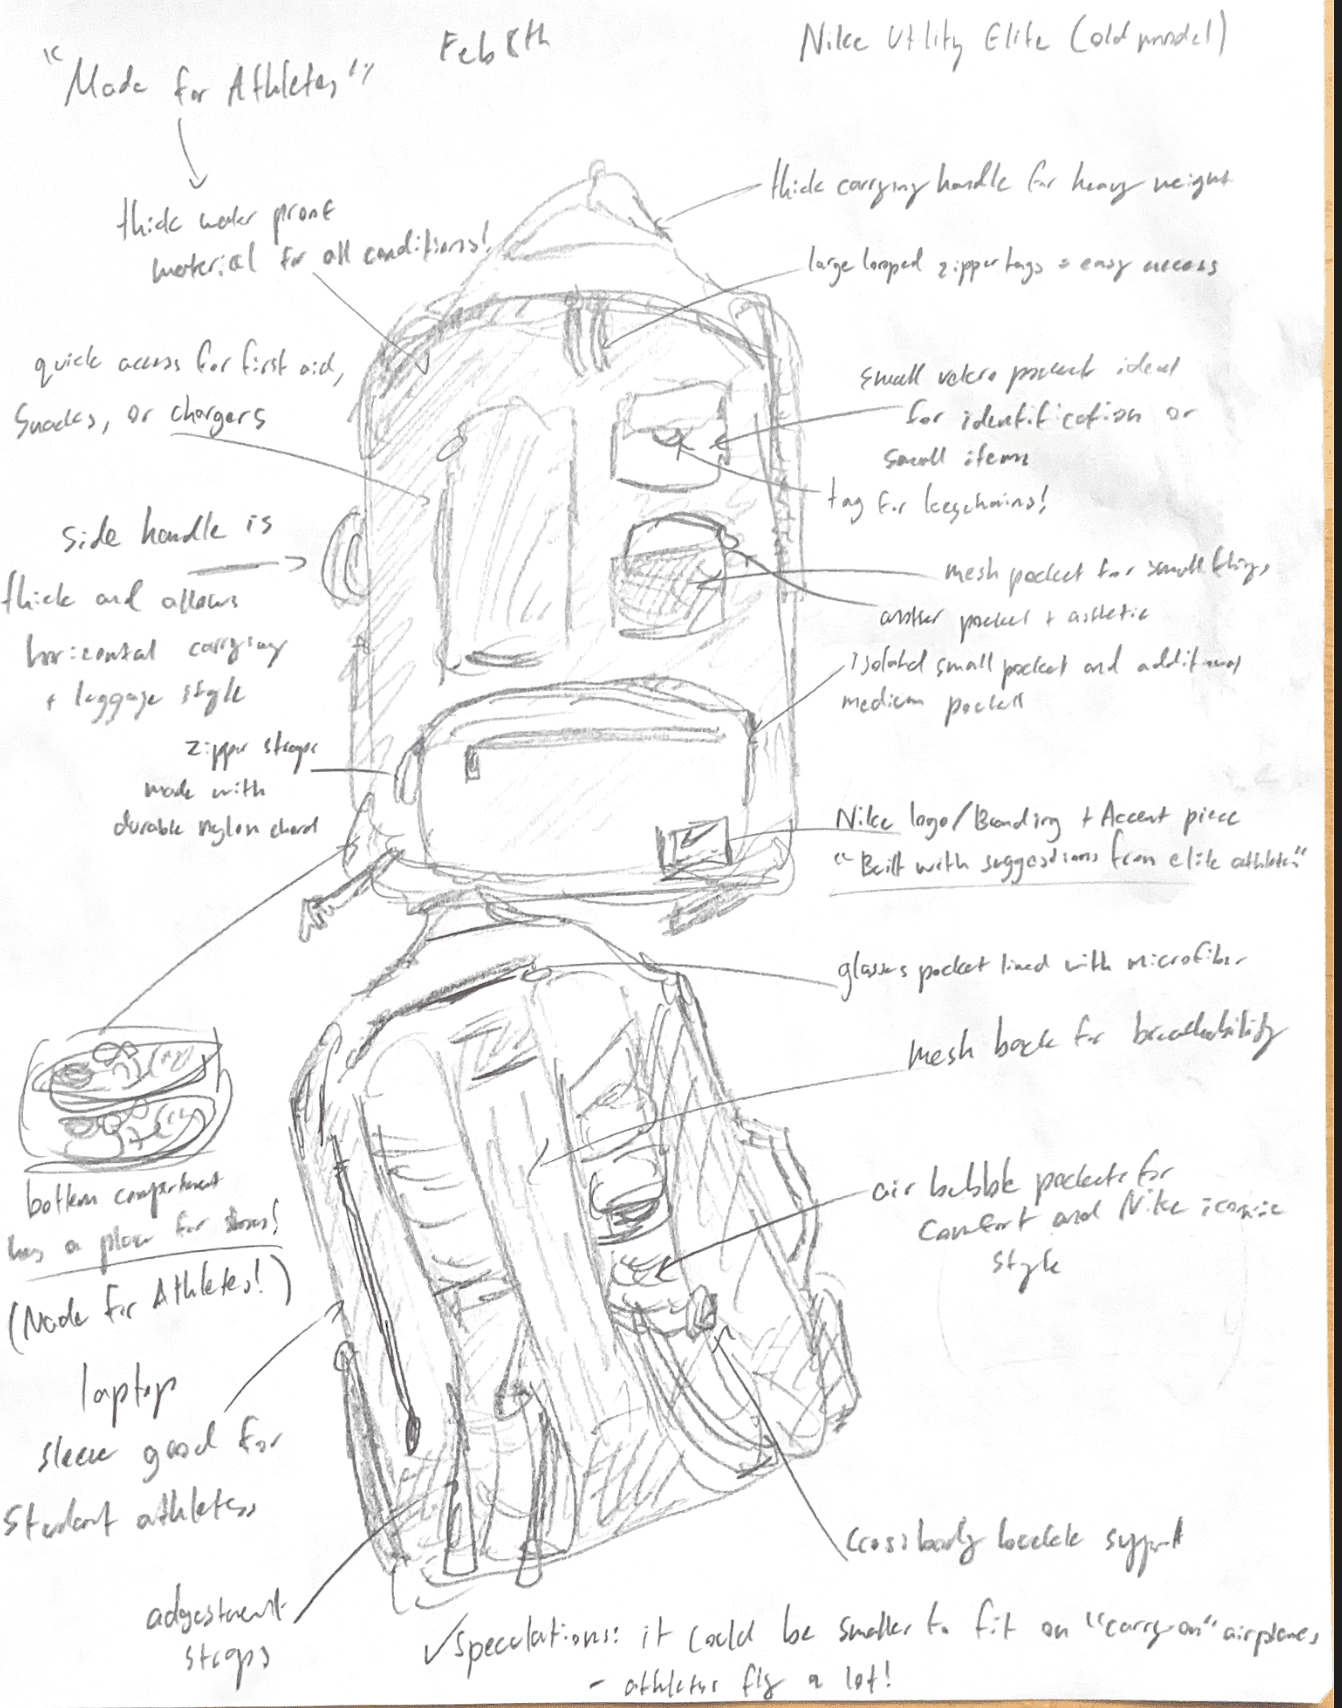 "Made for Athletes"
Feb 8th
Nike Utility Elite (old model)
thick water proof
material for all conditions!
thick carrying handle for heavy weight
large looped zipper tags = easy access
quick access for first aid,
snacks, or chargers
small velcro pocket ideal
for identification or
small items
tag for keychains!
side handle is
thick and allows
horizontal carrying
+ luggage style
mesh pocket for small things
another pocket + asthetic
isolated small pocket and additional
medium pocket
zipper straps
made with
durable nylon chord
Nike logo/Branding + Accent piece
"Built with suggestions from elite athletes"
glasses pocket lined with microfiber
mesh back for breathability
bottom compartment
has a place for shoes!
(Made for Athletes!)
air bubble pockets for
comfort and Nike iconic
style
laptop
sleeve good for
student athletes
crossbody buckle support
adjustment
straps
speculations: it could be smaller to fit on "carry-on" airplanes
- athletes fly a lot!